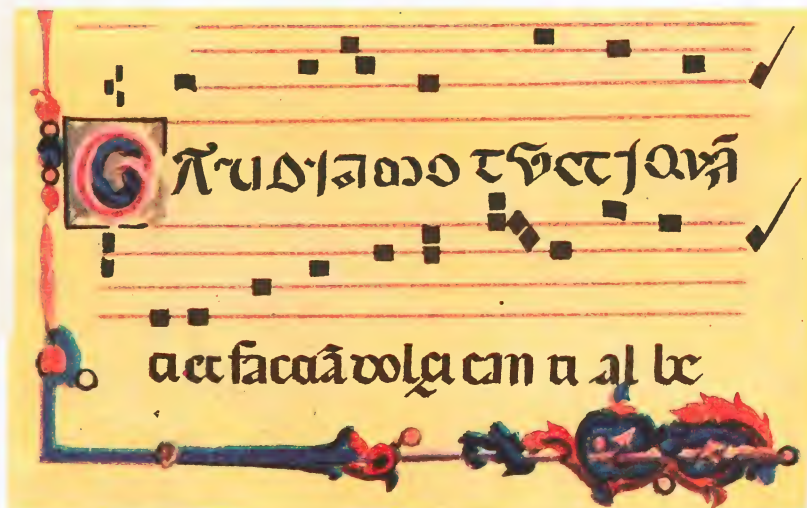 GAUDIAMO TVCTI QVÃ
ti et facciã dolçi can ti al be